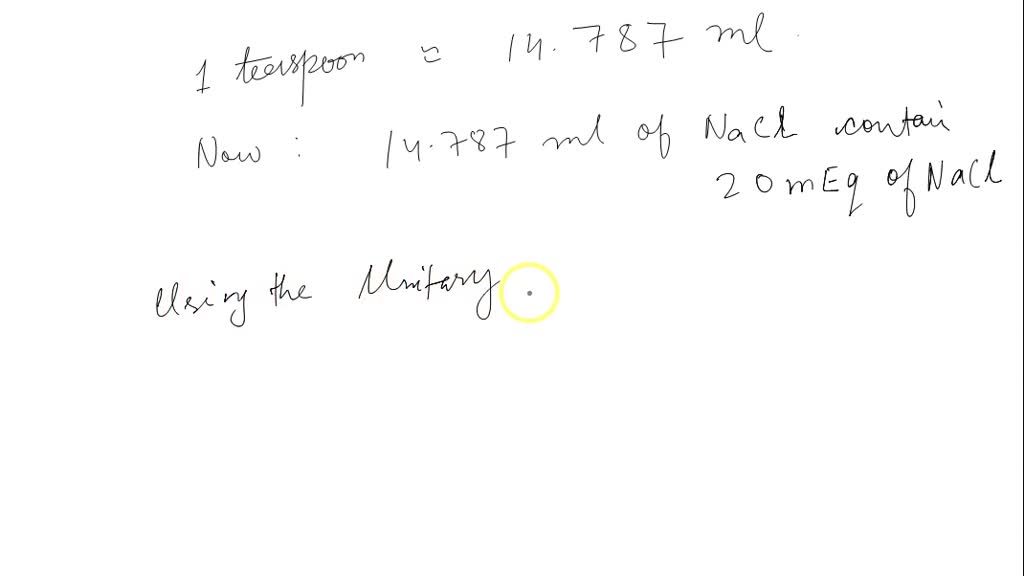 1 teaspoon ≈ 14.787 ml.
Now : 14.787 ml of NaCl contain
20 mEq of NaCl
Using the Unitary